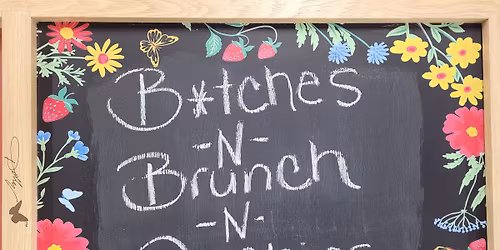 B*tches
-N-
Brunch
-N-